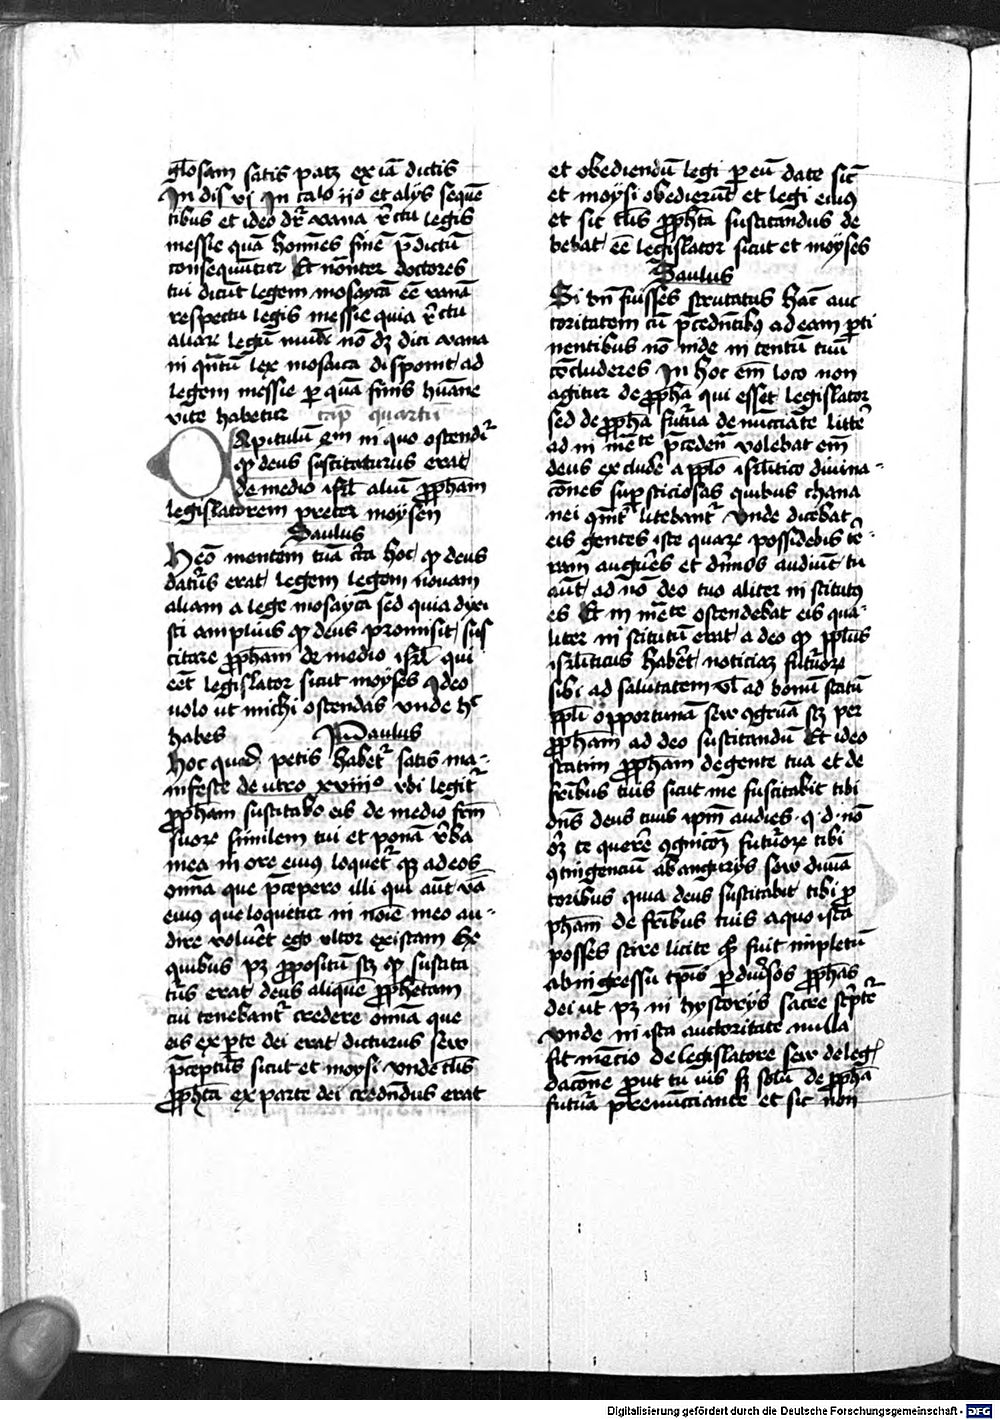 glosam satis patꝫ ex iā dictis
In dis vj in calo ijo et alijs sequē
tibus et ideo dr̄ vana r̄ctu legis
messie quā homines sine p̄dictū
consequūtur Et nōnter doctores
tui dicūt legem mosaycā eē vanā
respectu legis messie quia r̄ctu
aliaꝝ legū nō dꝫ dici vana
in qn̄tum lex mosaica disponit ad
legem messie per quā finis hūane
vite habetur cap̄ quartū
Apitulū em̄ in quo ostendit᷑
qꝫ deus suscitaturus erat
de medio isrl̄ aliū ꝓphetam
legislatorem preter moysen
Saulus
mentem tuā c̄ca hoc qꝫ deus
daturus erat legem legem nouam
aliam a lege mosayca sed quia dixi
sti amplius qꝫ deus promisit sus
citare ꝓphetam de medio isrl̄ qui
eēt legislator sicut moyses ideo
uolo ut michi ostendas unde hoc
habes Paulus
Hoc quod petis habet᷑ satis ma-
nifeste deutro xviiio vbi legit᷑
ꝓphetam suscitabo eis de medio frm̄
suoꝝ similem tui et ponā v̄ba
mea in ore eius loquet᷑ qꝫ ad eos
omnia que p̄cepero illi qui aūt v̄ba
eius que loquetur in noīe meo au-
dire voluēt ego vltor existam Ex
quibus pꝫ ꝓpositū scꝫ qꝫ suscita
turus erat deus aliquē ꝓphetam
cui tenebant᷑ credere omnia que
eis ex parte dei erat dicturus seu
p̄cepturus sicut et moysi unde talis
ꝓpheta ex parte dei credendus erat
et obediendū legi per eū date sic̄
et moysi obedierūt et legi eius
et sic talis ꝓpheta suscitandus de
bebat eē legislator sicut et moyses
Saulus
Si bn̄ fuisses scrutatus hac̄ auc
toritatem cū p̄cedn̄tibꝫ ad eam perti
nentibus nō inde intentū tuū
cōcluderes In hoc em̄ loco non
agitur de ꝓpheta qui esset legislator
sed de ꝓpheta futura denūcciāte
deus excludē a pplō isrl̄itico diuina-
cōnes sup̄sticiosas quibus chana
nei litebant᷑ Vnde dicebat
eis gentes iste quaꝝ possidebis tē-
ram augures et diuinos audiūt tu
aūt a dnō deo tuo aliter institutus
es Et ostendebat eis qua-
liter institutū erat a deo qꝫ pplūs
isrl̄iticus haberet noticiaꝫ futuroꝝ
sibi ad salutatem vl̄ ad bonū statū
pplī opportunā seu cōgruā scꝫ per
ꝓphetam a deo suscitandū Et ideo
statim ꝓphetam de gente tua et de
fribus tuis sicut me suscitabit tibi
dn̄s deus tuus ipm̄ audies · q · d · nō
oꝫ te querē cognicōeꝫ futuroꝝ tibi
cōtingenciū ab augurijs seu diuīa
toribus quia deus suscitabit tibi ꝓ
phetam de fribus tuis a quo ista
posses scire licite qd̄ fuit impletū
ab ingressu per diuersos ꝓphetas
dei ut pꝫ in hystorijs sacre sc̄ptꝛe
Vnde in ista auctoritate nulla
fit mēcio de legislatore seu de leg
dacōne ꝓut tu uis sꝫ solū de ꝓpheta
futura prenūcciante et sic non
Digitalisierung gefördert durch die Deutsche Forschungsgemeinschaft - DFG